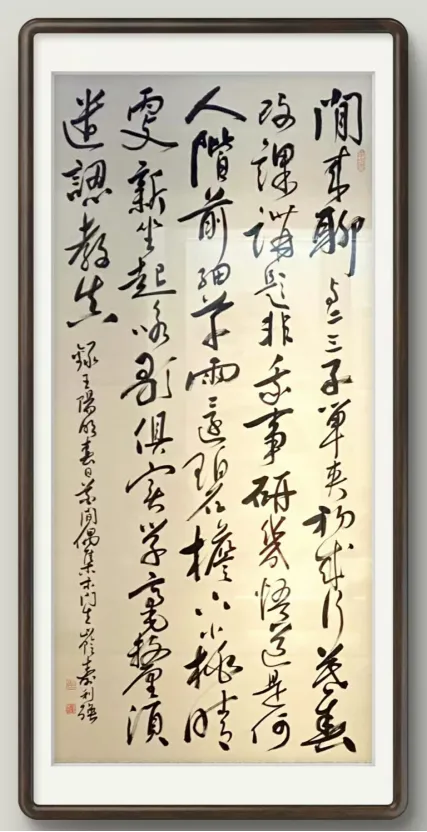 閒来聊与二三子單夾初成行暮春
改課講題非我事研幾悟道是何
人階前細草雨還碧檐下小桃晴
更新坐起咏歌俱实学毫釐須
遣認教真
録王陽明春日花間偶集示門生 利强